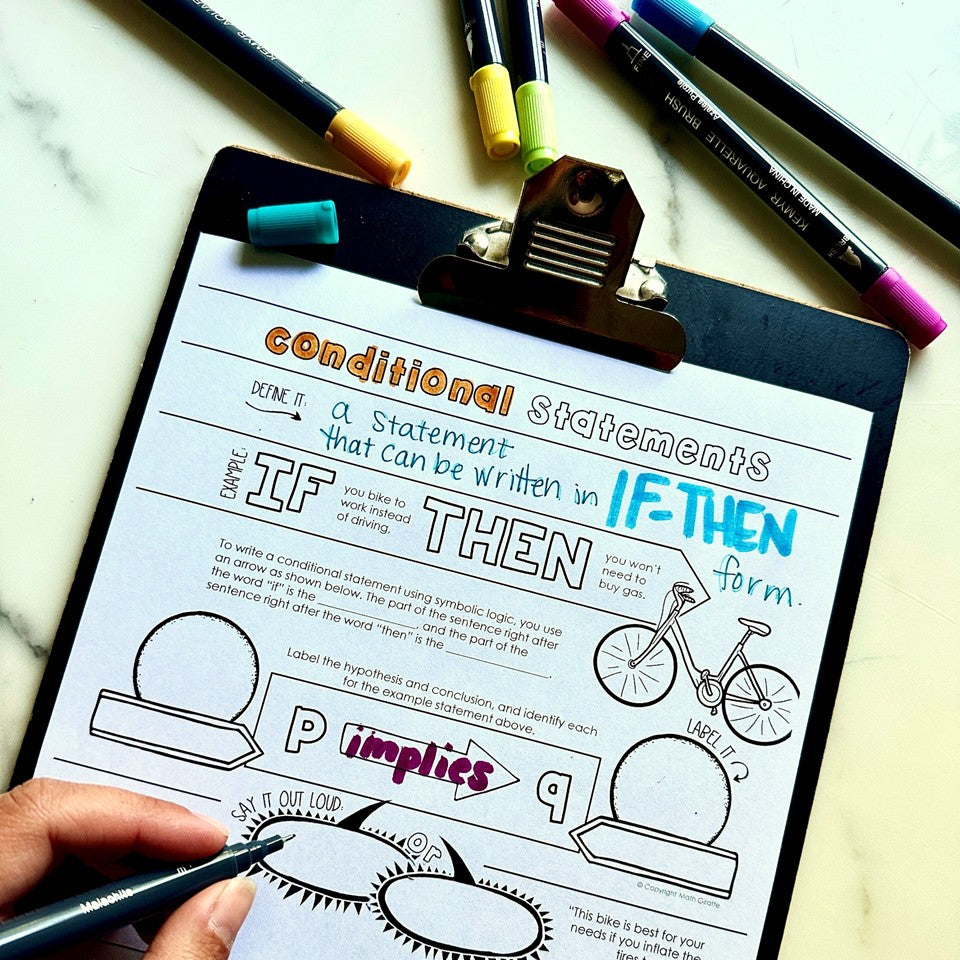 KEMYR AQUARELLE
FINE
Azalea Purple
KEMYR AQUARELLE BRUSH
MADE IN CHINA
BRUSH
conditional statements
DEFINE IT:
a statement
that can be written in IF-THEN
form.
EXAMPLE:
IF
you bike to
work instead
of driving,
THEN
you won't
need to
buy gas.
To write a conditional statement using symbolic logic, you use
an arrow as shown below. The part of the sentence right after
the word "if" is the ____________, and the part of the
sentence right after the word "then" is the ____________.
Label the hypothesis and conclusion, and identify each
for the example statement above.
LABEL IT
p implies q
SAY IT OUT LOUD:
or
© Copyright Math Giraffe
"This bike is best for your
needs if you inflate the
tires
Malachite